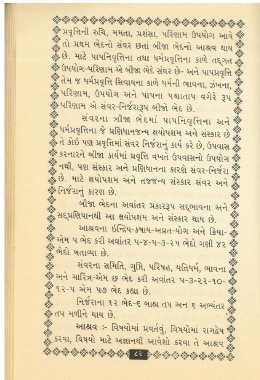 પ્રવૃત્તિની રુચિ, મમતા, પ્રશંસા, પરિણામ ઉપયોગ આવે
તો પ્રથમ ભેદનો સંવર છતાં બીજા ભેદનો આશ્રવ થાય
છે. માટે પાપનિવૃત્તિના તથા ધર્મપ્રવૃત્તિના કાળે તદ્ગત
ઉપયોગ-પરિણામ એ બીજા ભેદે સંવર છે- અને પાપપ્રવૃત્તિ
તેમ જ ધર્મપ્રવૃત્તિ સિવાયના કાળે ધર્મની ભાવના, ઝંખના,
પરિણામ, ઉપયોગ અને પાપના પશ્ચાતાપ વગેરે રૂપ
પરિણામ એ સંવર-નિર્જરારૂપ બીજો ભેદ છે.
સંવરના ત્રીજા ભેદમાં પાપનિવૃત્તિના અને
ધર્મપ્રવૃત્તિના જે પ્રણિધાનજન્ય ક્ષયોપશમ અને સંસ્કાર છે
તે કોઈ પણ પ્રવૃત્તિમાં સંવર નિર્જરાનું કાર્ય કરે છે, ઉપવાસ
કરનારને બીજા કાર્યમાં પ્રવૃત્તિ વખતે ઉપવાસનો ઉપયોગ
નથી, પણ સંસ્કાર અને પ્રણિધાનના કારણે સંવર-નિર્જરા
છે. માટે ક્ષયોપશમ અને તજજન્ય સંસ્કાર સંવર અને
નિર્જરાનું કારણ છે.
બીજા ભેદના અવાંતર પ્રકારરૂપ સદ્ભાવના અને
સદ્પ્રણિધાનથી આ ક્ષયોપશમ અને સંસ્કાર થાય છે.
આશ્રવના ઇન્દ્રિય-કષાય-અવ્રત-યોગ અને ક્રિયા-
એમ ૫ ભેદ કરી અવાંતર ૫-૪-૫-૩-૨૫ ભેદો ગણી ૪૨
ભેદો બતાવ્યા છે.
સંવરના સમિતિ, ગુપ્તિ, પરિષહ, યતિધર્મ, ભાવના
અને ચારિત્ર-એમ છ ભેદ કરી અવાંતર ૫-૩-૨૨-૧૦-
૧૨-૫ એમ ૫૭ ભેદ કહ્યા છે.
નિર્જરાના ૧૨ ભેદ-૬ બાહ્ય તપ અને ૬ અભ્યંતર
તપ મળીને થાય છે.
આશ્રવ :- વિષયોમાં પ્રવર્તવું, વિષયોમાં રાગદ્વેષ
કરવા, વિષયો માટે અજ્ઞાનથી આવેશો કરવા તે આશ્રવ
૮૨